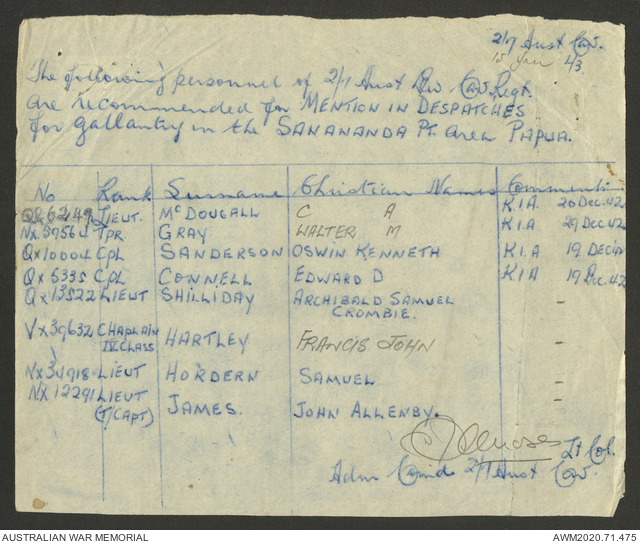 2/7 Aust Cav.
15 Jan 43
The following personnel of 2/7 Aust Div Cav. Regt.
are recommended for MENTION IN DESPATCHES
for gallantry in the SANANANDA Pt. area PAPUA.
No Rank Surname Christian Names Comments
LIEUT. McDOUGALL C A K.I.A 20 Dec. 42
NX59564 TPR GRAY WALTER M K.I.A 29 Dec 42
QX10004 Cpl SANDERSON OSWIN KENNETH K.I.A 19 Dec
QX5335 Cpl CONNELL EDWARD D K I A 19 Dec. 42
QX13522 LIEUT SHILLIDAY ARCHIBALD SAMUEL -
CROMBIE.
VX39632 CHAPLAIN HARTLEY FRANCIS JOHN -
IV CLASS
NX34918 LIEUT HORDERN SAMUEL -
NX12291 LIEUT JAMES. JOHN ALLENBY. -
(T/CAPT)
Lt Col.
Adm Comd 2/7 Aust Cav.
AUSTRALIAN WAR MEMORIAL AWM2020.71.475